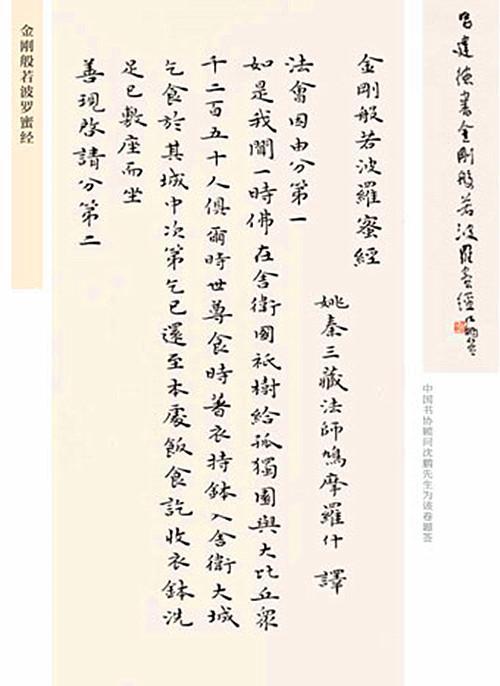 吕建德書金剛般若波羅蜜經 沈鹏签
中国书协顾问沈鹏先生为该卷题签
金剛般若波羅蜜經
姚秦三藏法師鳩摩羅什 譯
法會因由分第一
如是我聞一時佛在舍衛國祇樹給孤獨園與大比丘眾
千二百五十人俱爾時世尊食時著衣持鉢入舍衛大城
乞食於其城中次第乞已還至本處飯食訖收衣鉢洗
足已敷座而坐
善現啟請分第二
金刚般若波罗蜜经